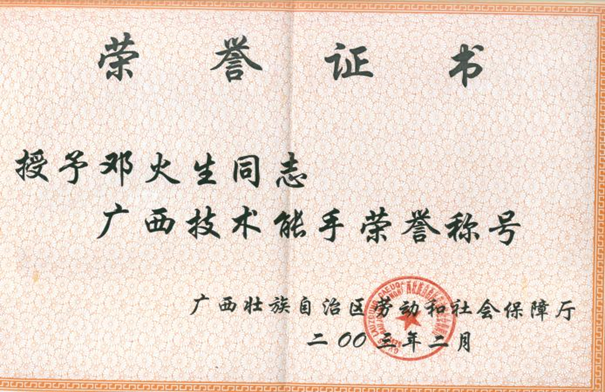 荣誉证书
授予邓火生同志
广西技术能手荣誉称号
广西壮族自治区劳动和社会保障厅
二〇〇三年二月